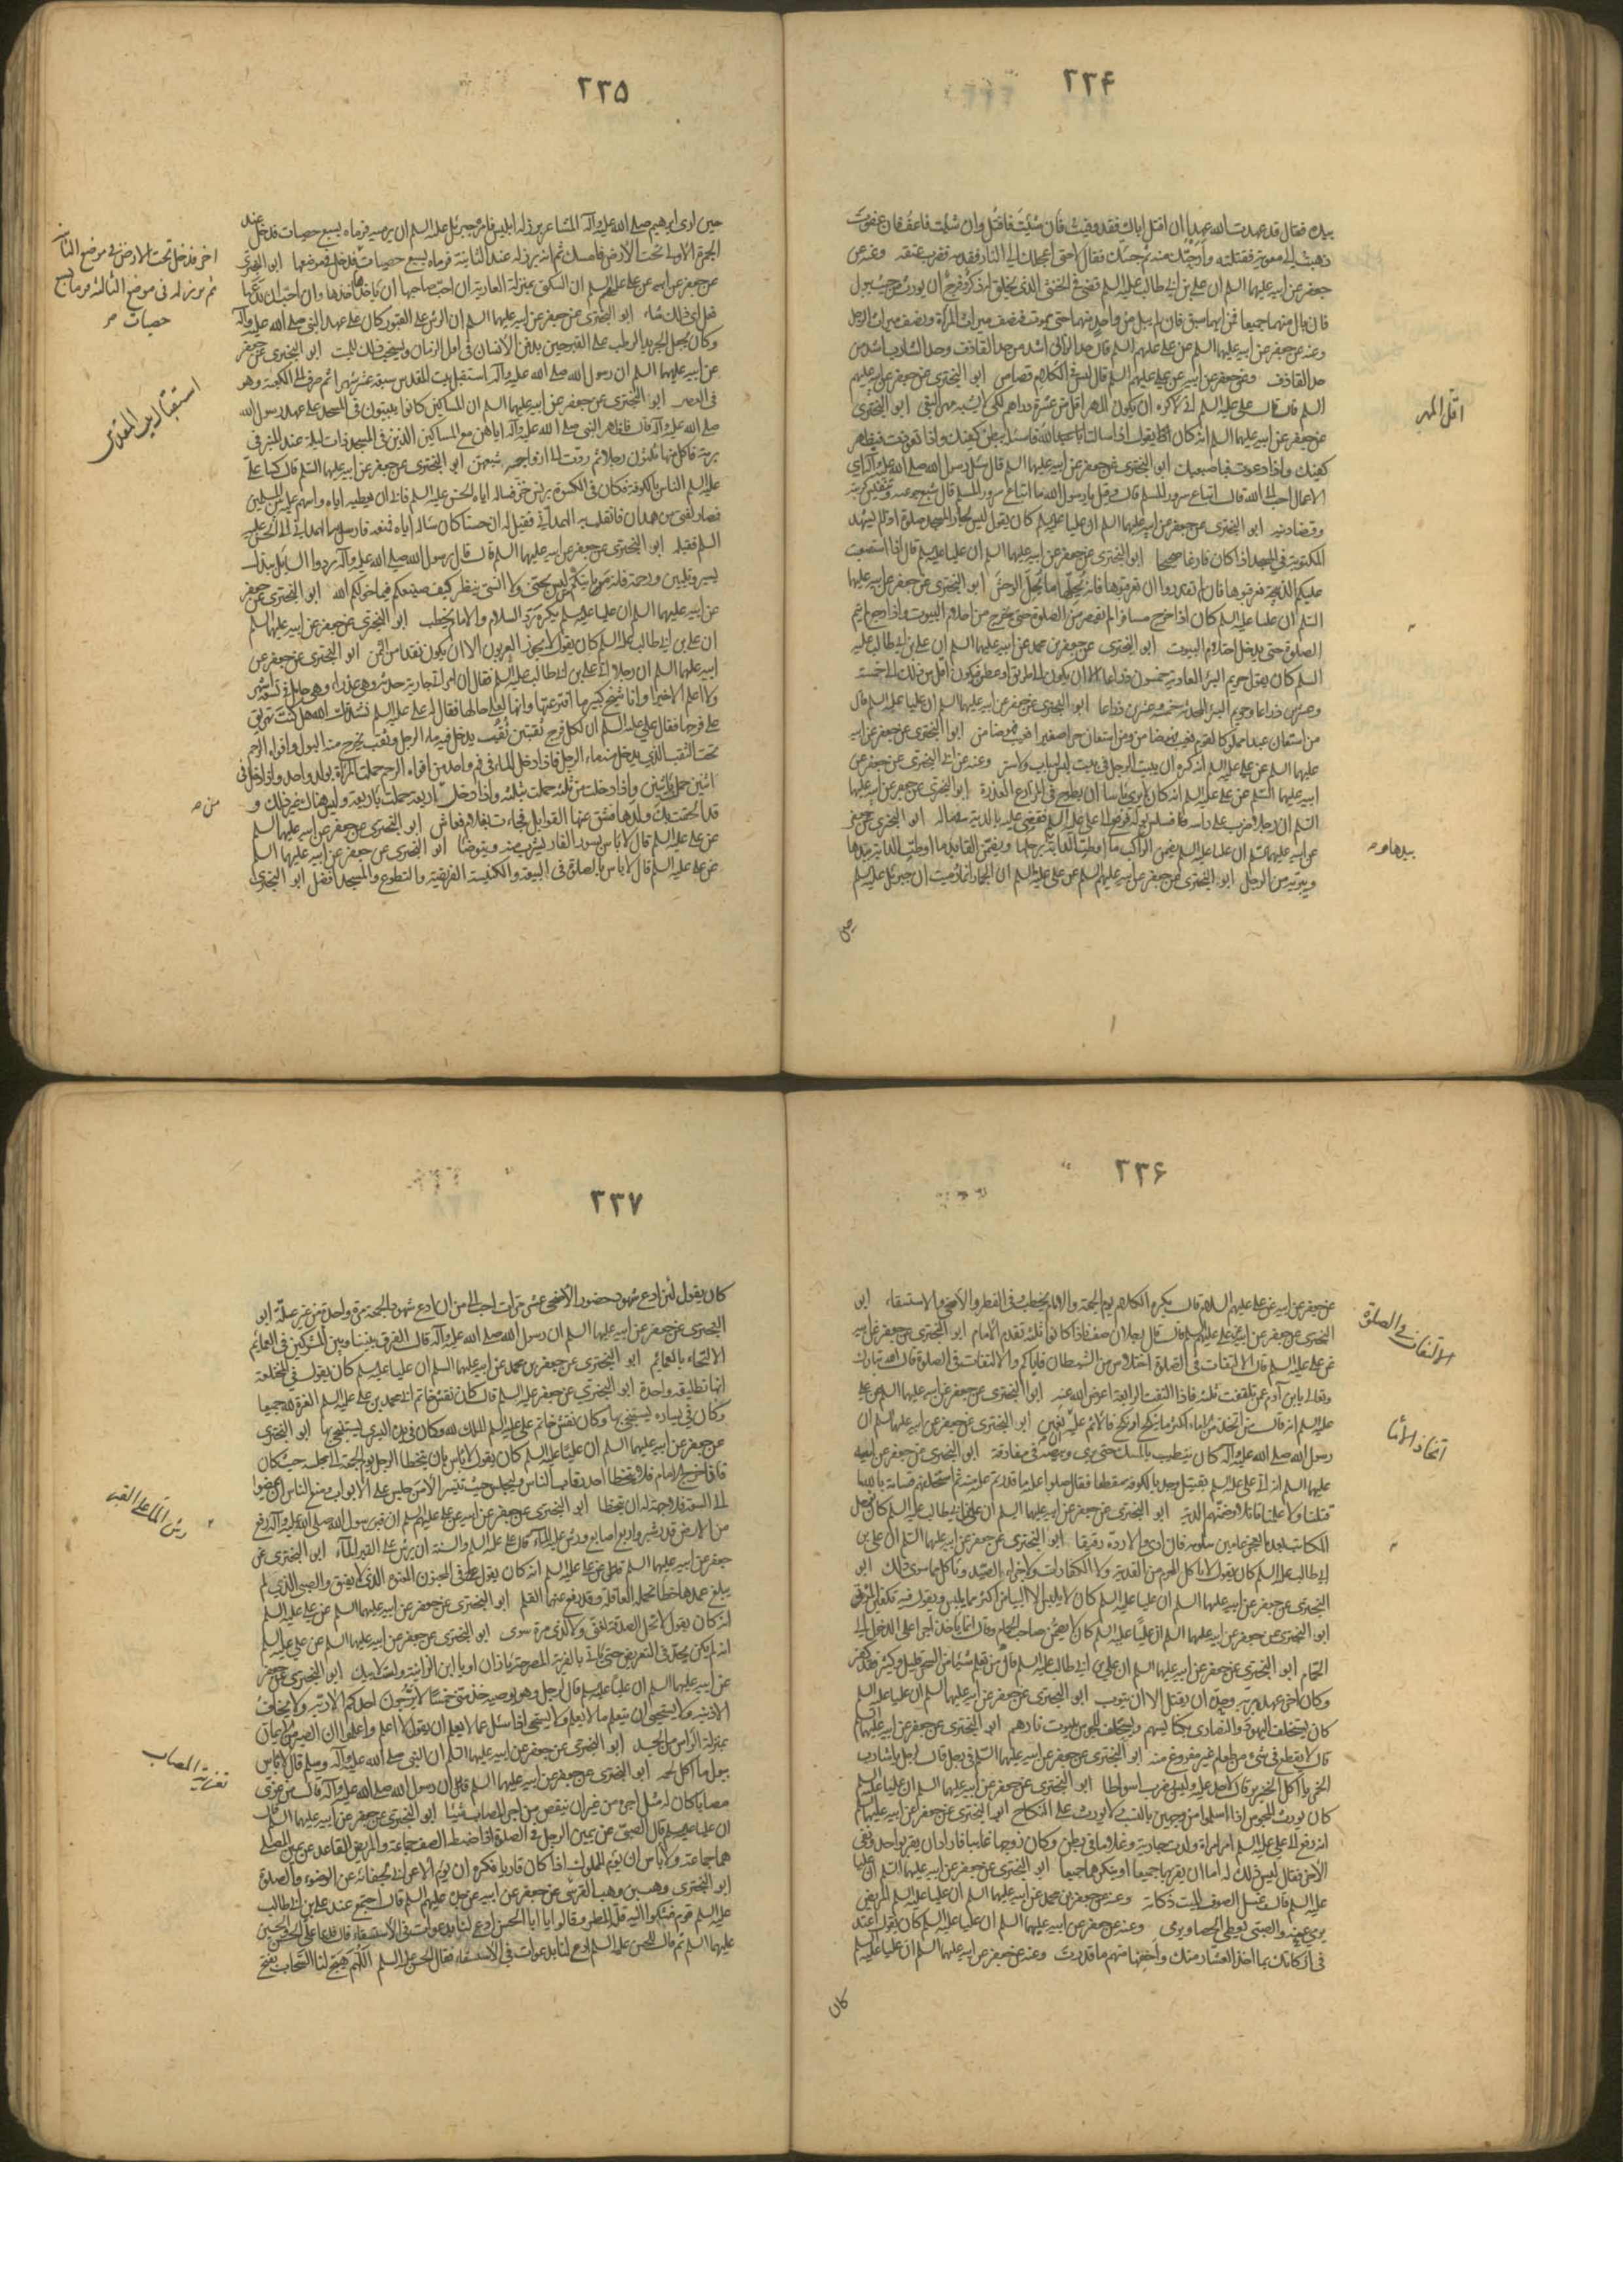 ٢٣۴
بيده فقال قد عهدت الله عهدا ان اقتل اباك فقد وفيت فان شئت فاقتل وان شئت فاعف فان عفوت
ذهبت الى معوية فقتلته وارحتك منه ثم جئتك فقال لا حتى اعجلك الى النار فقدمه فضرب عنقه وعنه عن
جعفر عن ابيه عليهما السلم ان على بن ابى طالب عليه السلم قضى فى الخنثى الذى يخلق له ذكر وفرج ان يورث من حيث يبول
فان بال منهما جميعا فمن ايهما سبق فان لم يبل من واحد منهما حتى يموت فنصف ميراث المرأة ونصف ميراث الرجل
وعنه عن جعفر عن ابيه عليهما السلم عن على عليهم السلم قال حد الزانى اشد من حد القاذف وحد الشارب اشد من
حد القاذف وعن جعفر عن ابيه عن على عليهم السلم قال ليس فى الكلام قصاص ابو البخترى عن جعفر عن ابيه عليهم
السلم قال قال على عليه السلم انى لاكره ان يكون المهر اقل من عشرة دراهم لكى لا يشبه مهر البغى ابو البخترى
عن جعفر عن ابيه عليهما السلم انه كان يقول اذا سالت الله فاسئله ببطن كفيك واذا تعوذت فبظاهر
كفيك واذا دعوت فباصبعيك ابو البخترى عن جعفر عن ابيه عليهما السلم قال سئل رسول الله صلى الله عليه وآله اى
الاعمال احب الى الله قال اتباع سرور المسلم قال قيل يا رسول الله ما اتباع سرور المسلم قال شبع جوعته وتنفيس كربته
وقضاء دينه ابو البخترى عن جعفر عن ابيه عليهما السلم ان عليا عليه السلم كان يقول ليس لجار المسجد صلوة اذا لم يشهد
المكتوبة فى المسجد اذا كان فارغا صحيحا ابو البخترى عن جعفر عن ابيه عليهما السلم ان عليا عليه السلم قال اذا استصعبت
عليكم الذبيحة فعرقبوها فان لم تقدروا ان تعرقبوها فانه يحلها ما يحل الوحش ابو البخترى عن جعفر عن ابيه عليهما
السلم ان عليا عليه السلم كان اذا خرج مسافرا لم يقصر من الصلوة حتى يخرج من احلام البيوت واذا رجع لم يتم
الصلوة حتى يدخل احلام البيوت ابو البخترى عن جعفر بن محمد عن ابيه عليهما السلم ان على بن ابى طالب عليه
السلم كان يقول حريم البئر العادية خمسون ذراعا الا ان يكون الى طريق او عطن فيكون اقل من ذلك الى خمسة
وعشرين ذراعا وحريم البئر المحدثة خمسة وعشرين ذراعا ابو البخترى عن جعفر عن ابيه عليهما السلم ان عليا عليه السلم قال
من استعان عبدا مملوكا لقوم فعيب فهو ضامن ومن استعان حرا صغيرا فعيب فهو ضامن ابو البخترى عن جعفر عن ابيه
عليهما السلم عن على عليه السلم انه كره ان يبيت الرجل فى بيت ليس له باب ولا ستر وعنه عن ابى البخترى عن جعفر عن
ابيه عليهما السلم عن على عليه السلم انه كان لا يرى باسا ان يطرح فى المزارع العذرة ابو البخترى عن جعفر عن ابيه عليهما
السلم ان رجلا ضرب على راسه فسلس بوله فرفع الى على عليه السلم فقضى عليه بالدية فى ماله ابو البخترى عن جعفر
عن ابيه عليهما السلم ان عليا عليه السلم يضمن الراكب ما اوطئت الدابة برجلها ويضمن القائد ما اوطئت الدابة بيدها
ويبرئه من الرجل ابو البخترى عن جعفر عن ابيه عليهما السلم عن على عليه السلم ان الجمار انما رميت ان جبرئيل عليه السلم
اقل المهر
بيدها و
حين
٢٣۵
حين ارى ابراهيم صلى الله عليه وآله المشاعر برز له ابليس فامره جبرئيل عليه السلم ان يرميه فرماه بسبع حصيات فدخل عند
الجمرة الاولى تحت الارض فامسك ثم انه برز له عند الثانية فرماه بسبع حصيات فدخل فى موضعها ابو البخترى
عن جعفر عن ابيه عن على عليهم السلم ان السكنى بمنزلة العارية ان احب صاحبها ان ياخذها اخذها وان احب ان يدعها
فعل اى ذلك شاء ابو البخترى عن جعفر عن ابيه عليهما السلم ان الرش على القبور كان على عهد النبى صلى الله عليه وآله
وكان يجعل الجريد الرطب على القبر حين يدفن الانسان فى اول الزمان ويستحب ذلك للميت ابو البخترى عن جعفر
عن ابيه عليهما السلم ان رسول الله صلى الله عليه وآله استقبل بيت المقدس سبعة عشر شهرا ثم صرف الى الكعبة وهو
فى العصر ابو البخترى عن جعفر عن ابيه عليهما السلم ان المساكين كانوا يبيتون فى المسجد على عهد رسول الله
صلى الله عليه وآله فان فافطر النبى صلى الله عليه وآله مع المساكين الذين فى المسجد ذات ليلة عند المنبر فى
برمة فاكل منها ثلثون رجلا ثم ردت الى ازواجه شبعهن ابو البخترى عن جعفر عن ابيه عليهما السلم قال كسا على
عليه السلم الناس بالكوفة فكان فى الكسوة برنس خز فساله اياه الحسن عليه السلم فابى ان يعطيه اياه واسهم عليه بين المسلمين
فصار لفتى من همدان فانقلب به الهمدانى فقيل له ان حسنا كان ساله اياه فمنعه فارسل به الهمدانى الى الحسن عليه
السلم فقبله ابو البخترى عن جعفر عن ابيه عليهما السلم قال قال رسول الله صلى الله عليه وآله ردوا السايل ببذل
يسير وبلين ورحمة فانه من ياتيكم ليس بجنى ولا انسى ينظر كيف صنيعكم فيما خولكم الله ابو البخترى عن جعفر
عن ابيه عليهما السلم ان عليا عليه السلم يكره رد السلام والامام يخطب ابو البخترى عن جعفر عن ابيه عليهما السلم
ان على بن ابى طالب عليه السلم كان يقول لا يجوز العربون الا ان يكون نقدا من الثمن ابو البخترى عن جعفر عن
ابيه عليهما السلم ان رجلا اتى على بن ابى طالب عليه السلم فقال ان امراتى جارية حدثة وهى عذراء وهى حامل فى تسعة اشهر
ولا اعلم الا خيرا وانا شيخ كبير ما افترعتها وانها لعلى حالها فقال له على عليه السلم نشدتك الله هل كنت تهريق
على فرجها فقال على عليه السلم ان لكل فرج ثقبتين ثقب يدخل فيه ماء الرجل وثقب يخرج منه البول وافواه الرحم
تحت الثقب الذى يدخل منه ماء الرجل فاذا دخل الماء فى فم واحد من افواه الرحم حملت المراة بولد واحد واذا دخل فى
اثنين حملت باثنين واذا دخل من ثلثة حملت بثلثة واذا دخل من اربعة حملت باربعة وليس هناك غير ذلك و
قد الحقت بك ولدها فشق عنها القوابل فجاءت بغلام فعاش ابو البخترى عن جعفر عن ابيه عليهما السلم
عن على عليه السلم قال لا باس بسؤر الفار ليشرب منه ويتوضا ابو البخترى عن جعفر عن ابيه عليهما السلم
عن على عليه السلم قال لا باس بالصلوة فى البيعة والكنيسة الفريضة والتطوع والمسجد افضل ابو البخترى
اخر فدخل تحت الارض فى موضع الثانية
ثم برز له فى موضع الثالثة فرماه بسبع
حصيات
استقبال بيت المقدس
من
٢٣۶
عن جعفر عن ابيه عن على عليهم السلام قال يكره الكلام يوم الجمعة والامام يخطب وفى الفطر والاضحى والاستسقاء ابو
البخترى عن جعفر عن ابيه عن على عليهم السلم قال قال رجلان صف فاذا كانوا ثلثة تقدم الامام ابو البخترى عن جعفر عن ابيه
عن على عليه السلم قال الالتفات فى الصلوة اختلاس من الشيطان فاياكم والالتفات فى الصلوة فان الله تبارك
وتعالى يابن آدم عمن تلتفت ثلثة فاذا التفت الرابعة اعرض الله عنه ابو البخترى عن جعفر عن ابيه عليهما السلم عن على
عليه السلم انه قال من اتخذ من الاماء اكثر مما ينكح او ينكح فالاثم عليه ان بغين ابو البخترى عن جعفر عن ابيه عليهما السلم ان
رسول الله صلى الله عليه وآله كان يتطيب بالمسك حتى يرى وبيصه فى مفارقه ابو البخترى عن جعفر عن ابيه
عليهما السلم انه اتى على عليه السلم بقتيل وجد بالكوفة مقطعا فقال صلوا عليه ما قدرتم عليه منه ثم استحلفهم قسامة بالله ما
قتلنا ولا علمنا قاتلا وضمنهم الدية ابو البخترى عن جعفر عن ابيه عليهما السلم ان على بن ابى طالب عليه السلم كان يؤجل
المكاتب بعد ما يعجز عامين يتلوه فان ادى والا رده رقيقا ابو البخترى عن جعفر عن ابيه عليهما السلم ان على بن
ابى طالب عليه السلم كان يقول لا ياكل المحرم من الفدية ولا الكفارات ولا جزاء الصيد وياكل مما سوى ذلك ابو
البخترى عن جعفر عن ابيه عليهما السلم ان عليا عليه السلم كان لا يلبس الا البياض اكثر ما يلبس ويقول فيه تكفين الموتى
ابو البخترى عن جعفر عن ابيه عليهما السلم ان عليا عليه السلم كان لا يضمن صاحب الحمام وقال انما ياخذ اجرا على الدخول الى
الحمام ابو البخترى عن جعفر عن ابيه عليهما السلم ان على بن ابى طالب عليه السلم قال من تعلم شيئا من السحر قليل وكثير فقد كفر
وكان اخر عهده بربه وحده ان يقتل الا ان يتوب ابو البخترى عن جعفر عن ابيه عليهما السلم ان عليا عليه السلم
كان يستحلف اليهود والنصارى بكنايسهم ويستحلف المجوس ببيوت نارهم ابو البخترى عن جعفر عن ابيه عليهما السلم
قال لا يقطع فى شىء من طعام غير مفروغ منه ابو البخترى عن جعفر عن ابيه عليهما السلم فى رجل قال لرجل يا شارب
الخمر يا آكل الخنزير قال لا حد عليه ولكن يضرب اسواطا ابو البخترى عن جعفر عن ابيه عليهما السلم ان عليا عليه السلم
كان يورث المجوس اذا اسلموا من وجهين بالنسب ولا يورث على النكاح ابو البخترى عن جعفر عن ابيه عليهما السلم
انه رفع الى على عليه السلم امر امراة ولدت جارية وغلاما فى بطن وكان زوجها غايبا فاراد ان يقر بواحد وينفى
الاخر فقال ليس ذلك له اما ان يقر بهما جميعا او ينكرهما جميعا ابو البخترى عن جعفر عن ابيه عليهما السلم ان عليا
عليه السلم قال غسل الصوف الميت ذكاته وعنه عن جعفر بن محمد عن ابيه عليهما السلم ان عليا عليه السلم المريض
يرمى عنه والصبى يعطى الحصا ويرمى وعنه عن جعفر عن ابيه عليهما السلم ان عليا عليه السلم كان يقول اعتد
فى زكاتك بما اخذ العشار منك واخفها منهم ما قدرت وعنه عن جعفر عن ابيه عليهما السلم ان عليا عليه السلم
الالتفات فى الصلوة
اتخاذ الاماء
كان
٢٣٧
كان يقول لئن ادع شهود حضور الاضحى عشر مرات احب الى من ان ادع شهود الجمعة مرة واحدة من غير علة ابو
البخترى عن جعفر عن ابيه عليهما السلم ان رسول الله صلى الله عليه وآله قال الفرق بيننا وبين المشركين فى العمايم
الالتحاء بالعمائم ابو البخترى عن جعفر بن محمد عن ابيه عليهما السلم ان عليا عليه السلم كان يقول فى المختلعة
انها تطليقة واحدة ابو البخترى عن جعفر عليه السلم قال كان نقش خاتم ابى محمد بن على عليه السلم العزة لله جميعا
وكان فى يساره يستنجى بها وكان نقش خاتم على عليه السلم الملك لله وكان فى يده اليسرى يستنجى بها ابو البخترى
عن جعفر عن ابيه عليهما السلم ان عليا عليه السلم كان يقول لا باس بان يتخطا الرجل يوم الجمعة الى مجلسه حيث كان
فاذا خرج الامام فلا يتخطا احد رقاب الناس وليجلس حيث تيسر الا من جلس على الابواب ومنع الناس ان يمضوا
الى السعة فلا حرمة له ان يتخطا ابو البخترى عن جعفر عن ابيه عن على عليهم السلم ان قبر رسول الله صلى الله عليه وآله رفع
من الارض قدر شبر واربع اصابع ورش عليه الماء قال على عليه السلم والسنة ان يرش على القبر الماء ابو البخترى عن
جعفر عن ابيه عليهما السلم عن على عليه السلم انه كان يقول فى المجنون المعتوه الذى لا يفيق والصبى الذى لم
يبلغ عمدهما خطا تحمله العاقلة وقد رفع عنهما القلم ابو البخترى عن جعفر عن ابيه عليهما السلم عن على عليه السلم
انه كان يقول لا تحل الصدقة لغنى ولا لذى مرة سوى ابو البخترى عن جعفر عن ابيه عليهما السلم عن على عليه السلم
انه لم يكن يحد فى التعريض حتى ياتى بالفرية المصرحة يا زان او يا ابن الزانية ولست لابيك ابو البخترى عن جعفر
عن ابيه عليهما السلم ان عليا عليه السلم قال لرجل وهو يوصيه خذ منى خمسا لا يرجون احدكم الا ربه ولا يخاف
الا ذنبه ولا يستحيى ان يتعلم ما لا يعلم ولا يستحى اذا سئل عما لا يعلم ان يقول لا اعلم واعلموا ان الصبر من الايمان
بمنزلة الراس من الجسد ابو البخترى عن جعفر عن ابيه عليهما السلم ان النبى صلى الله عليه وآله وسلم قال لا باس
ببول ما اكل لحمه ابو البخترى عن جعفر عن ابيه عليهما السلم قال ان رسول الله صلى الله عليه وآله قال من عزى
مصابا كان له مثل اجره من غير ان ينقص من اجر المصاب شيئا ابو البخترى عن جعفر عن ابيه عليهما السلم قال
ان عليا عليه السلم قال الصبى عن يمين الرجل فى الصلوة اذا ضبط الصف جماعة والمريض القاعد عن يمين المصلى
هما جماعة ولا باس ان يؤم المملوك اذا كان قاريا وكره ان يؤم الاعرابى لجفائه عن الوضوء والصلوة
ابو البخترى وهب بن وهب القرشى عن جعفر عن ابيه عن جده عليهم السلم قال اجتمع عند على بن ابى طالب
عليه السلم قوم فشكوا اليه قلة المطر وقالوا يا ابا الحسن ادع لنا بدعوات فى الاستسقاء قال فدعا على الحسن والحسين
عليهما السلم ثم قال للحسن عليه السلم ادع لنا بدعوات فى الاستسقاء فقال الحسن عليه السلم اللهم هيج لنا السحاب بفتح
رش الماء على القبر
تعزية المصاب